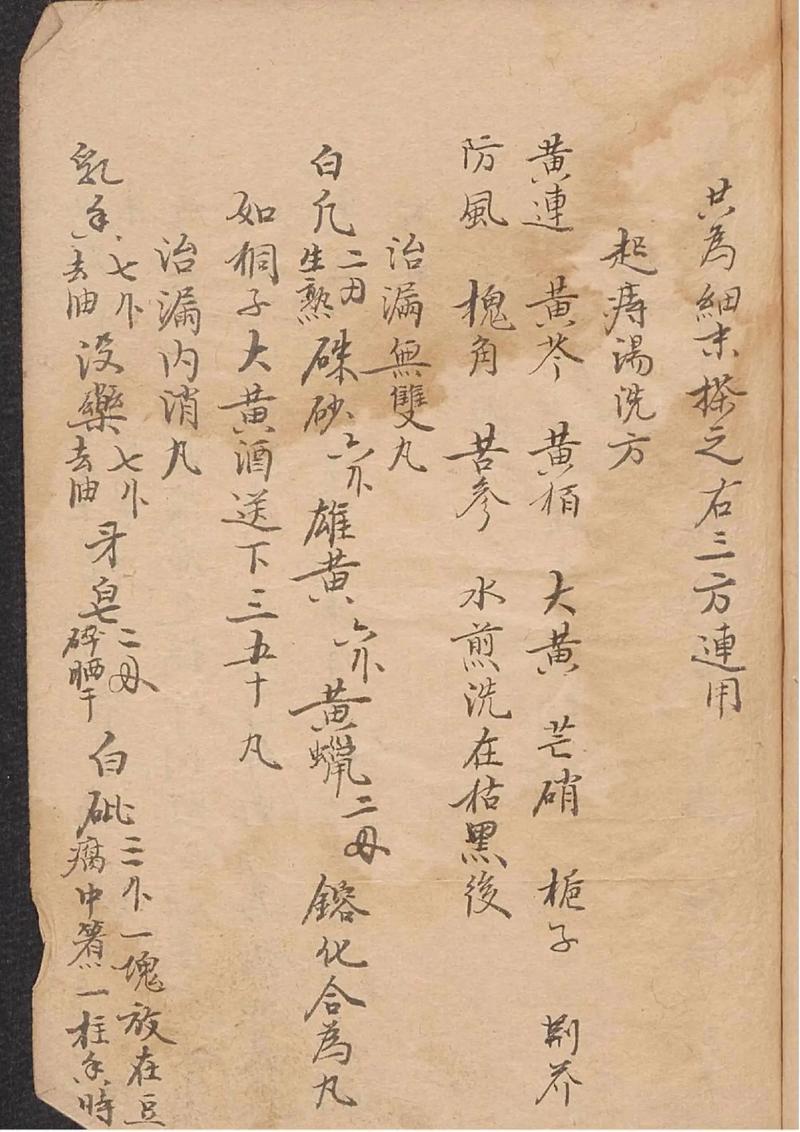 共為細末搽之右三方連用
起痔湯洗方
黃連 黃芩 黃栢 大黃 芒硝 栀子 荆芥
防風 槐角 苦參 水煎洗在枯黑後
治漏無雙丸
白凡二刄生熟硃砂六分雄黃六分黃蠟二母鎔化合為丸
如桐子大黃酒送下三五十丸
治漏内消丸
乳香七分去油没藥七分去油牙皂二母碎晒干白砒三分一塊放在豆腐中煮一柱香時